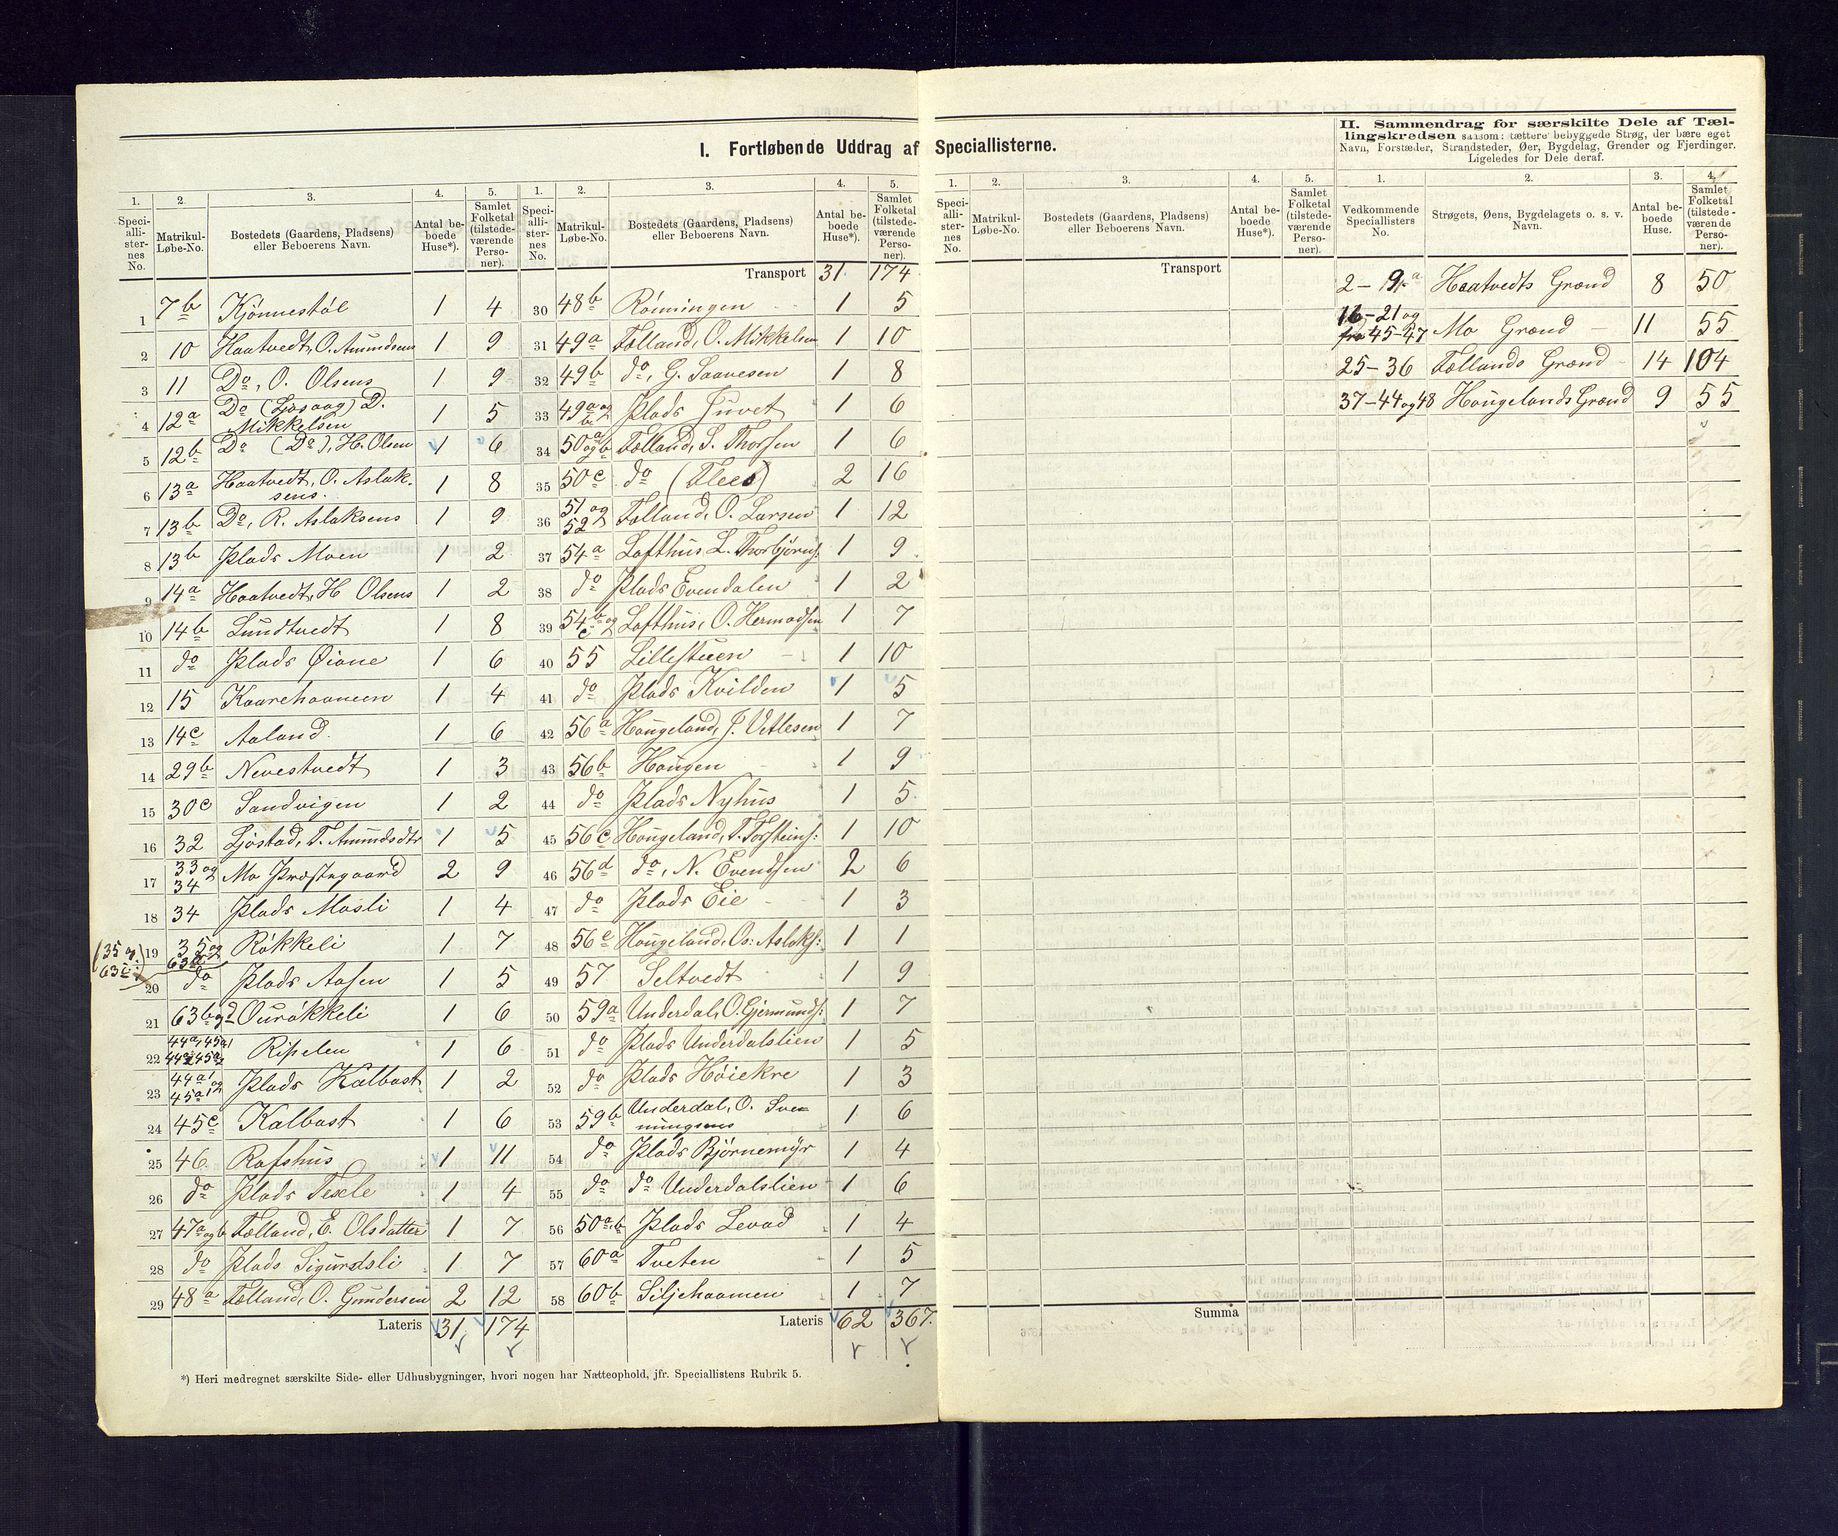 I. Fortløbende Uddrag af Speciallisterne.
II. Sammendrag for særskilte Dele af Tæl-
lingskredsen saasom: tættere bebyggede Strøg, der bære eget
Navn, Forstæder, Strandsteder, Øer, Bygdelag, Grender og Fjerdinger.
Ligeledes for Dele deraf.
1. 2. 3. 4. 5. 1. 2. 3. 4. 5.
Speciallisternes No. Matrikul-Løbe-No. Bostedets (Gaardens, Pladsens) eller Beboerens Navn. Antal beboede Huse*). Samlet Folketal (tilstedeværende Personer).
Transport 31 174
1 7b Kjønnestøl 1 4
2 10 Haatvedt, O. Amundsens 1 9
3 11 Do, O. Olsens 1 9
4 12a Do (Ljosaag) D. Mikkelsen 1 5
5 12b Do (Do), H. Olsen 1 6
6 13a Haatvedt, O. Aslaksens. 1 8
7 13b Do, R. Aslaksens 1 9
8 13b Plads Moen 1 2
9 14a Haatvedt, H Olsens 1 2
10 14b Lundtvedt 1 8
11 do Plads Øiane 1 6
12 15 Kaarehaaneen 1 4
13 14c Aaland. 1 6
14 29b Nevestvedt 1 3
15 30c Sandvigen 1 2
16 32 Ljøstad, T. Amundsdtr 1 5
17 33 og 34 Mo Præstegaard 2 9
18 34 Plads Mosli 1 4
(35 og 63c)
19 35 og 63c Røkkeli 1 7
20 do Plads Aasen 1 5
21 63b og d Ourøkkeli 1 6
22 44a1, 45a1 44a2 45a2 Rispelen 1 6
23 44a1 og 45a12 Plads Kalbast 1 2
24 45c Kalbast 1 6
25 46. Rafshus 1 11
26 do Plads Texle 1 4
27 47a og b Fælland, E. Olsdatter 1 7
28 do Plads Sigurdsli 1 7
29 48a Fælland, O. Gundersen 2 12
Lateris 31 174
30 48b Rønningen 1 5
31 49a Fælland, O. Mikkelsen 1 10
32 49b do, G. Saavesen 1 8
33 49a og b Plads Juvet 1 6
34 50a og b Fælland, S. Thorsen 1 6
35 50c do 2 16
36 51 og 52 Fælland, O. Larsen 1 12
37 54a Lofthus L. Thorbjørns: 1 9
38 do Plads Evendalen 1 2
39 54b og c Lofthus, O. Hermodsen 1 7
40 55 Lillestuen 1 10
41 do Plads Kvilden 1 5
42 56a Haugeland, J. Vetlesen 1 7
43 56b Haugen 1 9
44 do Plads Nyhus 1 5
45 56c Haugeland, T. Torsteins: 1 10
46 56d do, N. Evendsen 2 6
47 do Plads Eie 1 3
48 56e Haugeland, Os: Aslaks: 1 1
49 57 Seltvedt 1 9
50 59a Underdal, O. Gjermunds: 1 7
51 do Plads Underdalslien 1 5
52 do Plads Høiekre 1 3
53 59b Underdal, O. Svenungsens 1 6
54 do Plads Bjørnemyr 1 4
55 do do Underdalslien 1 6
56 50a,b Plads Levad 1 4
57 60a Tveten 1 5
58 60b Siljehaamen 1 7
Lateris 62 367.
*) Heri medregnet særskilte Side- eller Udhusbygninger, hvori nogen har Natteophold, jfr. Speciallistens Rubrik 5.
1. 2. 3. 4. 5.
Speciallisternes No. Matrikul-Løbe-No. Bostedets (Gaardens, Pladsens) eller Beboerens Navn. Antal beboede Huse*). Samlet Folketal (tilstedeværende Personer).
Transport
Summa
1. 2. 3. 4.
Vedkommende Speciallisters No. Strøgets, Øens, Bygdelagets o. s. v. Navn. Antal beboede Huse. Samlet Folketal (tilstedeværende Personer).
2-9a Haatvedts Grænd 8 50
16-21 og fra 45-47 Mo Grænd 11 55
25-36 Fællands Grænd 14 104
37-44 og 48 Haugelands Grænd 9 55